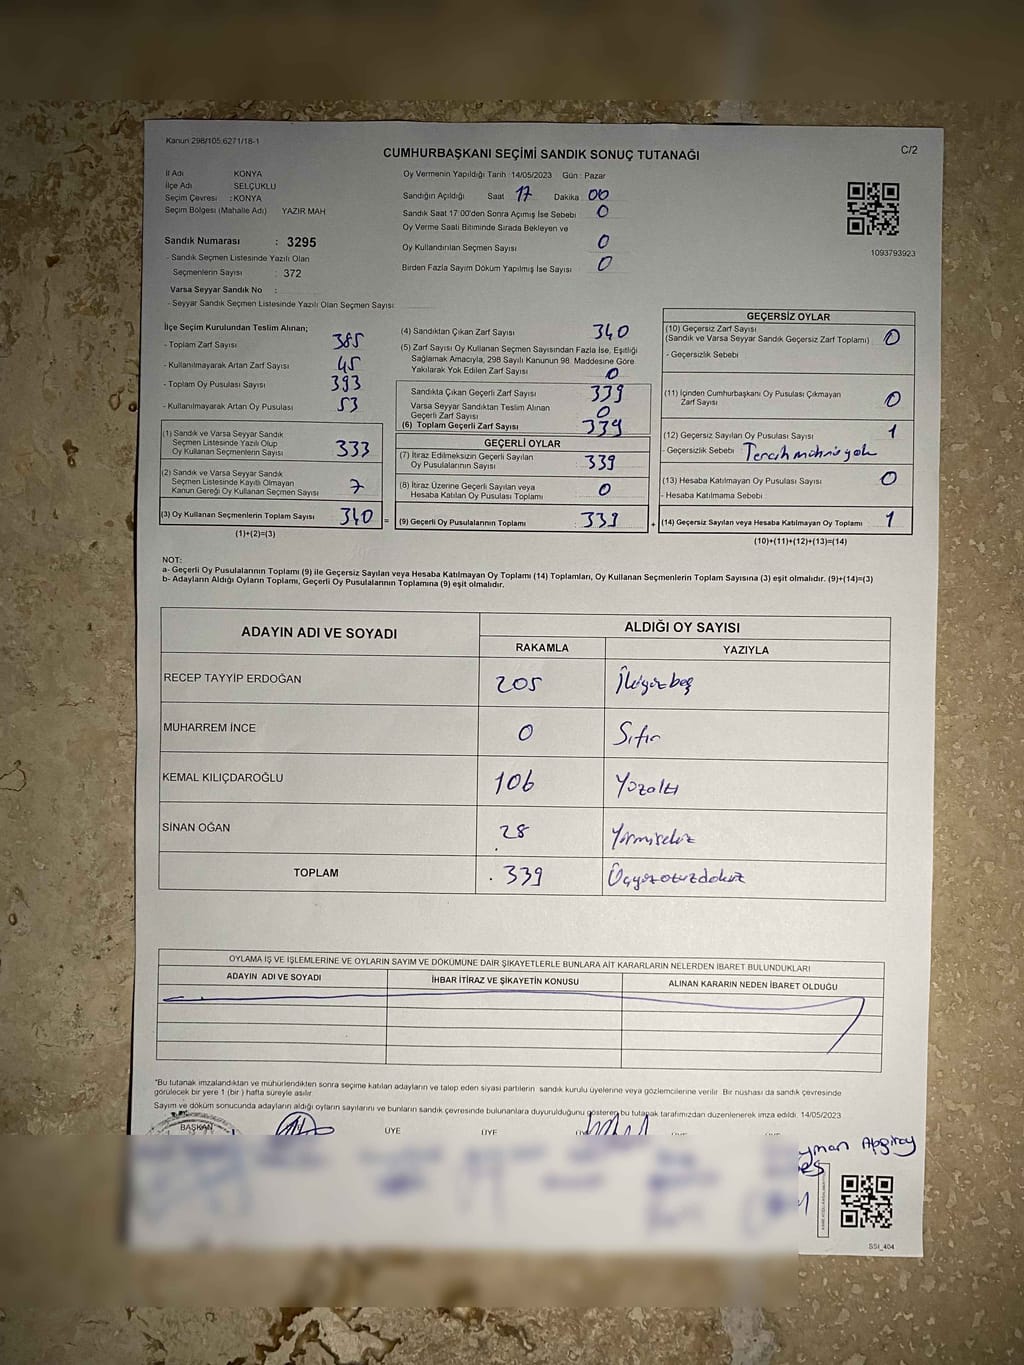 Kanun 298/105 6271/18-1
C/2
CUMHURBAŞKANI SEÇİMİ SANDIK SONUÇ TUTANAĞI
İl Adı KONYA
İlçe Adı SELÇUKLU
Seçim Çevresi : KONYA
Seçim Bölgesi (Mahalle Adı) YAZIR MAH
Sandık Numarası : 3295
- Sandık Seçmen Listesinde Yazılı Olan
Seçmenlerin Sayısı : 372
Varsa Seyyar Sandık No :
- Seyyar Sandık Seçmen Listesinde Yazılı Olan Seçmen Sayısı:
Oy Vermenin Yapıldığı Tarih : 14/05/2023 Gün : Pazar
Sandığın Açıldığı Saat 17 Dakika 00
Sandık Saat 17:00'den Sonra Açımış İse Sebebi 0
Oy Verme Saati Bitiminde Sırada Bekleyen ve
Oy Kullandırılan Seçmen Sayısı 0
Birden Fazla Sayım Döküm Yapılmış İse Sayısı 0
1093793923
İlçe Seçim Kurulundan Teslim Alınan;
- Toplam Zarf Sayısı 385
- Kullanılmayarak Artan Zarf Sayısı 45
- Toplam Oy Pusulası Sayısı 393
- Kullanılmayarak Artan Oy Pusulası 53
(1) Sandık ve Varsa Seyyar Sandık
Seçmen Listesinde Yazılı Olup
Oy Kullanan Seçmenlerin Sayısı 333
(2) Sandık ve Varsa Seyyar Sandık
Seçmen Listesinde Kayıtlı Olmayan
Kanun Gereği Oy Kullanan Seçmen Sayısı 7
(3) Oy Kullanan Seçmenlerin Toplam Sayısı 340 =
(1)+(2)=(3)
(4) Sandıktan Çıkan Zarf Sayısı 340
(5) Zarf Sayısı Oy Kullanan Seçmen Sayısından Fazla İse, Eşitliği
Sağlamak Amacıyla, 298 Sayılı Kanunun 98. Maddesine Göre
Yakılarak Yok Edilen Zarf Sayısı 0
Sandıkta Çıkan Geçerli Zarf Sayısı 339
Varsa Seyyar Sandıktan Teslim Alınan
Geçerli Zarf Sayısı 0
(6) Toplam Geçerli Zarf Sayısı 339
GEÇERLİ OYLAR
(7) İtiraz Edilmeksizin Geçerli Sayılan
Oy Pusulalarının Sayısı 339
(8) İtiraz Üzerine Geçerli Sayılan veya
Hesaba Katılan Oy Pusulası Toplamı 0
(9) Geçerli Oy Pusulalarının Toplamı 339 +
GEÇERSİZ OYLAR
(10) Geçersiz Zarf Sayısı
(Sandık ve Varsa Seyyar Sandık Geçersiz Zarf Toplamı) 0
- Geçersizlik Sebebi
(11) İçinden Cumhurbaşkanı Oy Pusulası Çıkmayan
Zarf Sayısı 0
(12) Geçersiz Sayılan Oy Pusulası Sayısı 1
- Geçersizlik Sebebi Tercih mührü yok
(13) Hesaba Katılmayan Oy Pusulası Sayısı 0
- Hesaba Katılmama Sebebi
(14) Geçersiz Sayılan veya Hesaba Katılmayan Oy Toplamı 1
(10)+(11)+(12)+(13)=(14)
NOT:
a- Geçerli Oy Pusulalarının Toplamı (9) ile Geçersiz Sayılan veya Hesaba Katılmayan Oy Toplamı (14) Toplamları, Oy Kullanan Seçmenlerin Toplam Sayısına (3) eşit olmalıdır. (9)+(14)=(3)
b- Adayların Aldığı Oyların Toplamı, Geçerli Oy Pusulalarının Toplamına (9) eşit olmalıdır.
ADAYIN ADI VE SOYADI ALDIĞI OY SAYISI
RAKAMLA YAZIYLA
RECEP TAYYİP ERDOĞAN 205 İkiyüzbeş
MUHARREM İNCE 0 Sıfır
KEMAL KILIÇDAROĞLU 106 Yüzaltı
SİNAN OĞAN 28 Yirmisekiz
TOPLAM 339 Üçyüzotuzdokuz
OYLAMA İŞ VE İŞLEMLERİNE VE OYLARIN SAYIM VE DÖKÜMÜNE DAİR ŞİKAYETLERLE BUNLARA AİT KARARLARIN NELERDEN İBARET BULUNDUKLARI
ADAYIN ADI VE SOYADI İHBAR İTİRAZ VE ŞİKAYETİN KONUSU ALINAN KARARIN NEDEN İBARET OLDUĞU
"Bu tutanak imzalandıktan ve mühürlendikten sonra seçime katılan adayların ve talep eden siyasi partilerin sandık kurulu üyelerine veya gözlemcilerine verilir. Bir nüshası da sandık çevresinde
görülecek bir yere 1 (bir) hafta süreyle asılır.
Sayım ve döküm sonucunda adayların aldığı oyların sayılarını ve bunların sandık çevresinde bulunanlara duyurulduğunu gösteren bu tutanak tarafımızdan düzenlenerek imza edildi. 14/05/2023
BAŞKAN ÜYE ÜYE
SSI_404